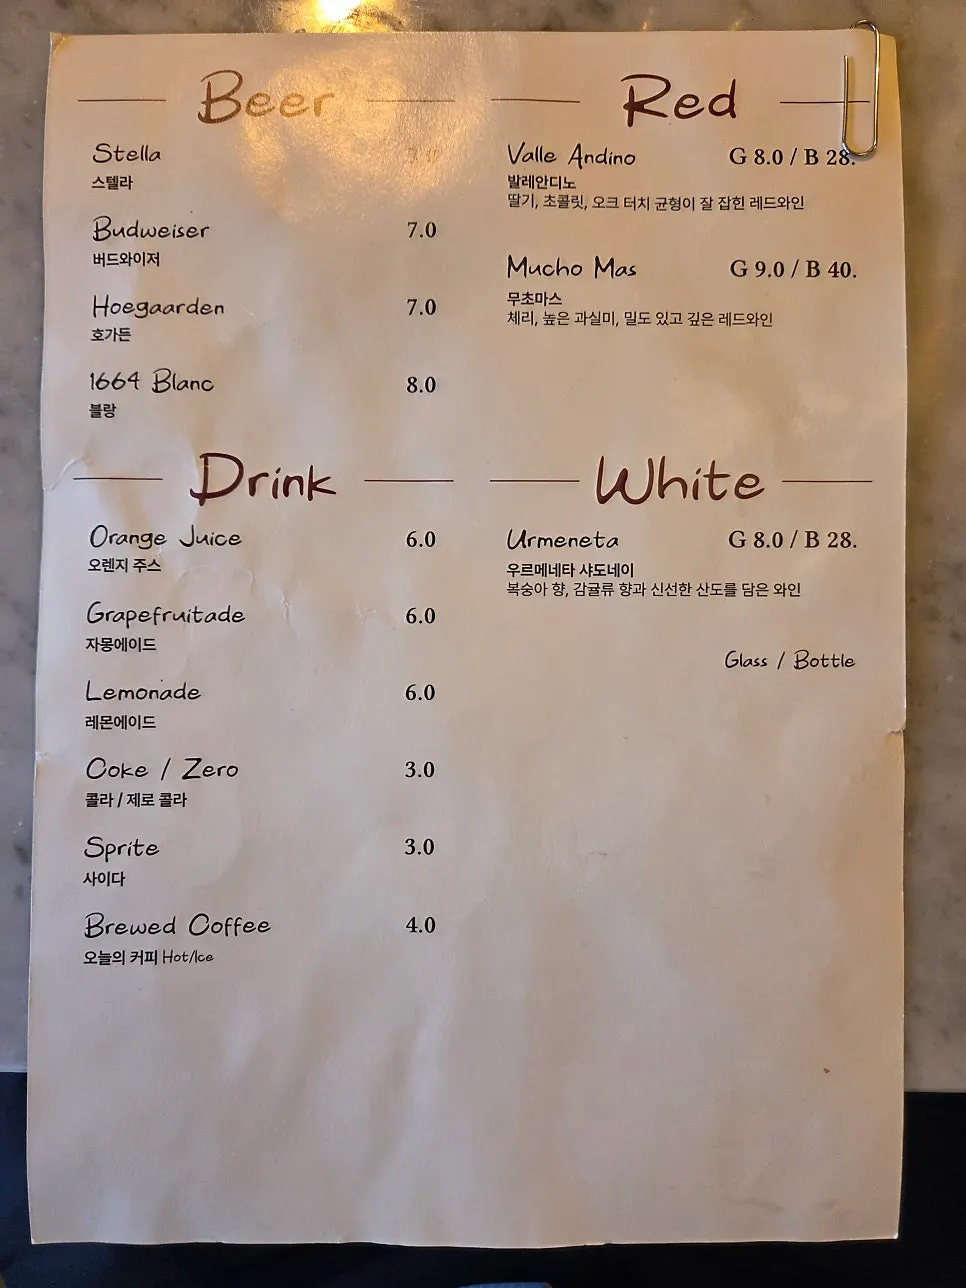 Beer
Stella
스텔라
Budweiser 7.0
버드와이저
Hoegaarden 7.0
호가든
1664 Blanc 8.0
블랑
Drink
Orange Juice 6.0
오렌지 주스
Grapefruitade 6.0
자몽에이드
Lemonade 6.0
레몬에이드
Coke / Zero 3.0
콜라 / 제로 콜라
Sprite 3.0
사이다
Brewed Coffee 4.0
오늘의 커피 Hot/Ice
Red
Valle Andino G 8.0 / B 28.
발레안디노
딸기, 초콜릿, 오크 터치 균형이 잘 잡힌 레드와인
Mucho Mas G 9.0 / B 40.
무초마스
체리, 높은 과실미, 밀도 있고 깊은 레드와인
White
Urmeneta G 8.0 / B 28.
우르메네타 샤도네이
복숭아 향, 감귤류 향과 신선한 산도를 담은 와인
Glass / Bottle